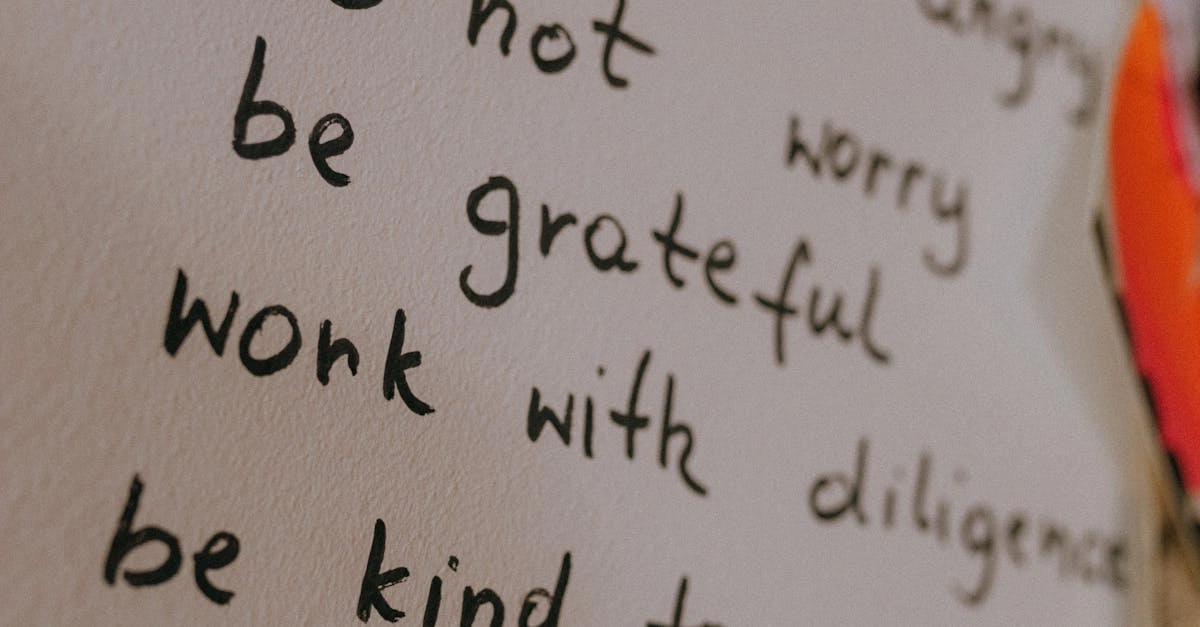 angry
not worry
be grateful
wonk with diligence
be kind